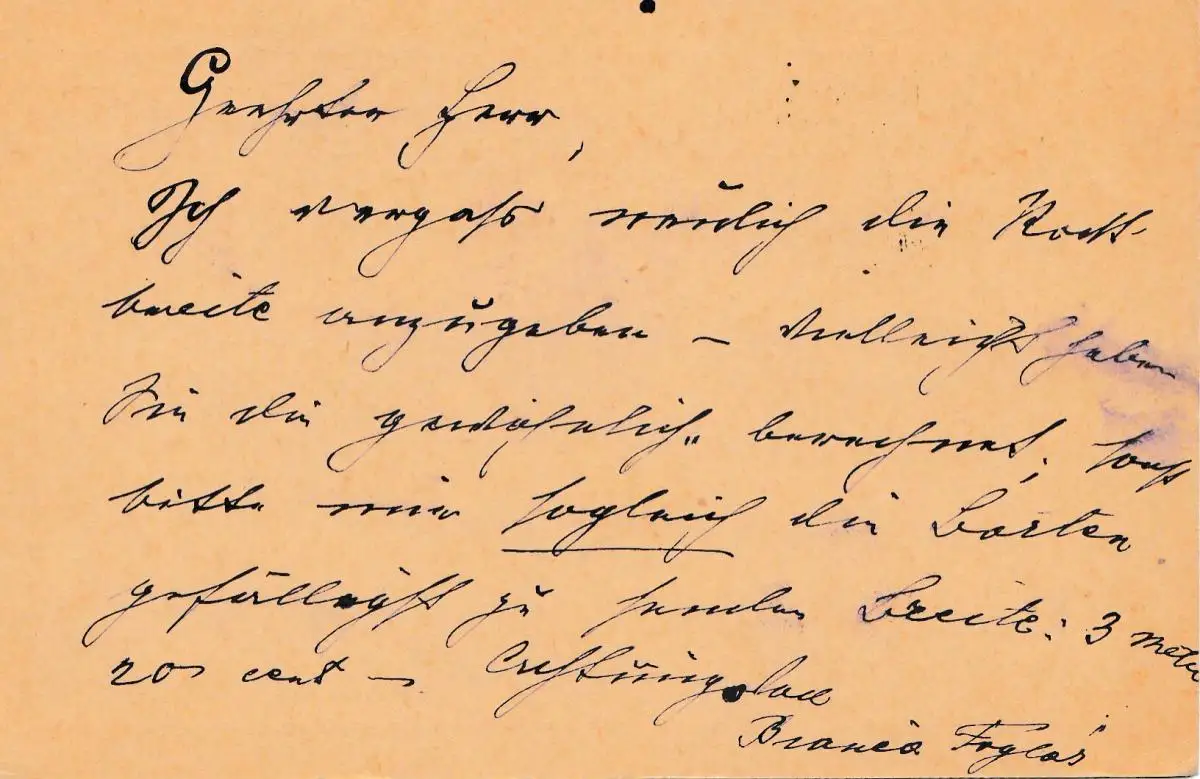 Geehrter Herr,
Ich vergass neulich die Rock-
breite anzugeben – vielleicht haben
Sie die gewöhnlich„ berechnet, sonst
bitte mir sogleich die Borten
gefälligst zu senden Breite: 3 Meter
20 cent – Achtungsvoll
Bianca